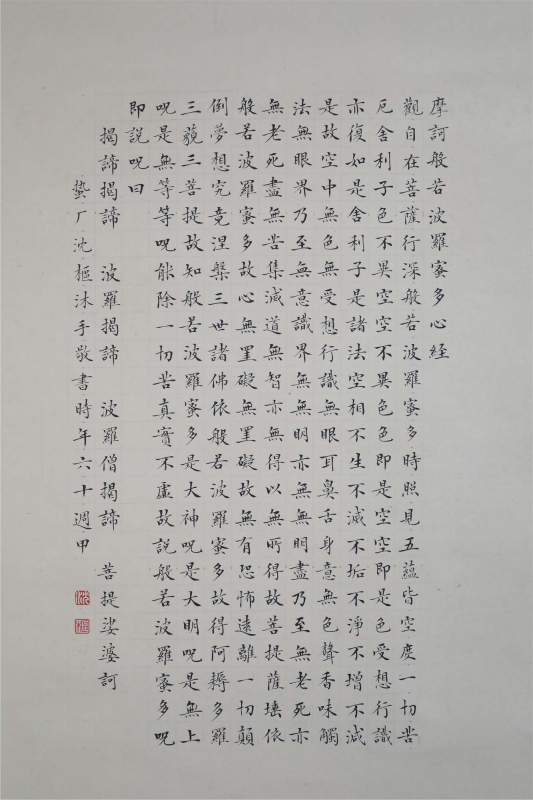 摩訶般若波羅蜜多心經
觀自在菩薩行深般若波羅蜜多時照見五蘊皆空度一切苦
厄舍利子色不異空空不異色色即是空空即是色受想行識
亦復如是舍利子是諸法空相不生不滅不垢不淨不增不減
是故空中無色無受想行識無眼耳鼻舌身意無色聲香味觸
法無眼界乃至無意識界無無明亦無無明盡乃至無老死亦
無老死盡無苦集滅道無智亦無得以無所得故菩提薩埵依
般若波羅蜜多故心無罣礙無罣礙故無有恐怖遠離一切顛
倒夢想究竟涅槃三世諸佛依般若波羅蜜多故得阿耨多羅
三藐三菩提故知般若波羅蜜多是大神呪是大明呪是無上
呪是無等等呪能除一切苦真實不虛故說般若波羅蜜多呪
即說呪曰
揭諦揭諦 波羅揭諦 波羅僧揭諦 菩提娑婆訶
蟄厂沈樞沐手敬書時年六十週甲
沈
樞